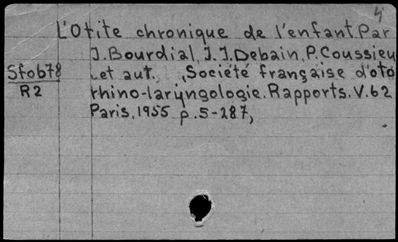 4
L'Otite chronique de l'enfant. Par
J. Bourdial, J. J. Debain, P. Coussieu
et aut. Société française d'oto
Sf0678
R2
rhino-laryngologie. Rapports. V.62
Paris, 1955 p. 5-287,